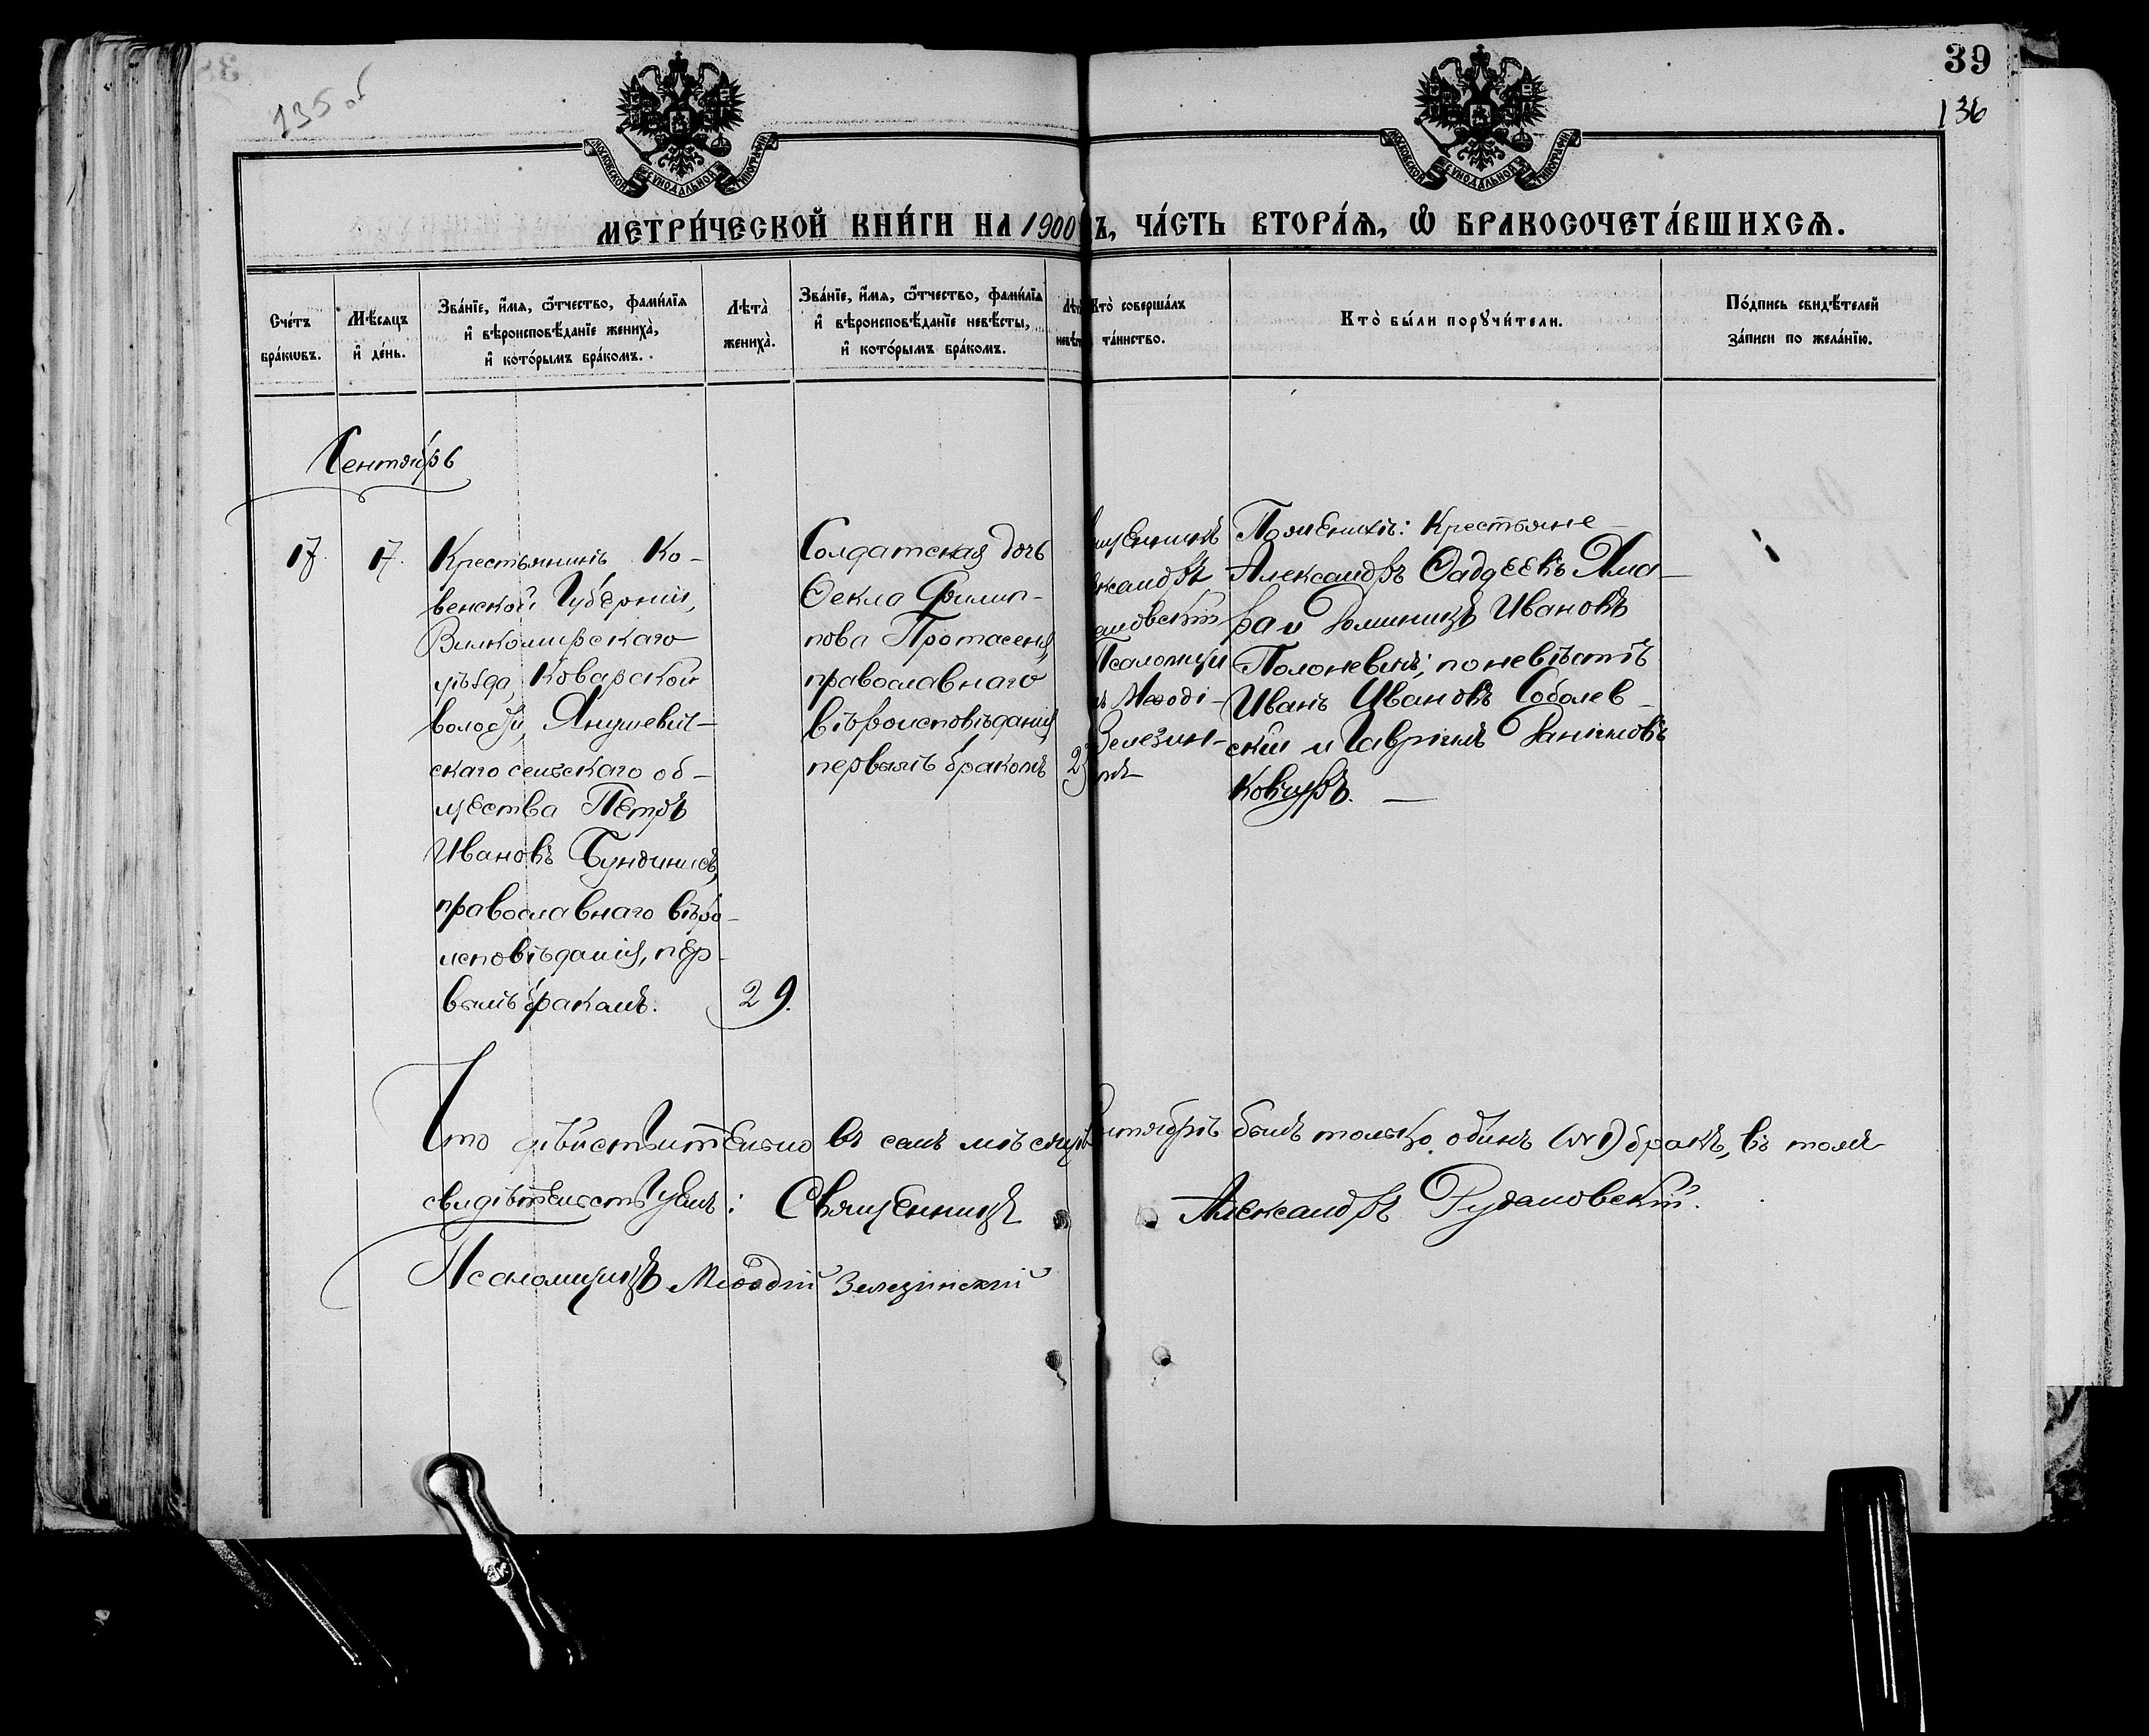 39
135 об
136
МОСКОВСКОЙ СУНОДАЛЬНОЙ ТИПОГРАФІИ
МОСКОВСКОЙ СУНОДАЛЬНОЙ ТИПОГРАФІИ
МЕТРИ́ЧЕСКОЙ КНИ́ГИ НА 1900 Ъ, ЧА́СТЬ ВТОРА́Ѧ, Ѡ҆ БРАКОСОЧЕТА́ВШИХСѦ.
Сче́тъ
бра́кѡвъ.
Мѣ́сяцъ
и҆ де́нь.
Зва́нїе, и҆́мѧ, ѻ҆́тчество, фами́лїѧ
и҆ вѣроисповѣ́данїе жениха̀,
и҆ кото́рымъ бра́комъ.
Лѣта̀
жениха̀.
Зва́нїе, и҆́мѧ, ѻ҆́тчество, фами́лїѧ
и҆ вѣроисповѣ́данїе невѣ́сты,
и҆ кото́рымъ бра́комъ.
Лѣт
невѣс
Кто̀ соверша́лъ
та́инство.
Кто̀ бы́ли порꙋчи́тели.
По́дпись свидѣ́телей
за́писи по жела́нїю.
Сентябрь
17.
17.
Крестьянинъ Ко-
венской Губерніи,
Вилкомирскаго
уѣзда, Коварской
волости, Янушевич-
скаго сельскаго об-
щества Петръ
Ивановъ Бундинисъ,
православнаго вѣро-
исповѣданія, пер-
вымъ бракомъ.
29.
Солдатская дочь
Ѳекла Филип-
пова Протасеня,
православнаго
вѣроисповѣданія
первымъ бракомъ
23
ященникъ
ександръ
ановскій
Псаломщи
ъ Меѳоді-
Зелезин-
По женихѣ: Крестьяне
Александръ Ѳаддеевъ Яма-
ра и Доминикъ Ивановъ
Полоневичъ; по невѣстѣ
Иванъ Ивановъ Соболев-
скій и Гавріилъ
Ковширъ.
Что дѣйствительно въ семъ мѣсяцѣ ентябрѣ былъ только одинъ (№ 1) бракъ, въ томъ
свидѣтельствуемъ: Священникъ Александръ Рудановскій.
Псаломщикъ Меѳодій Зелезинскій